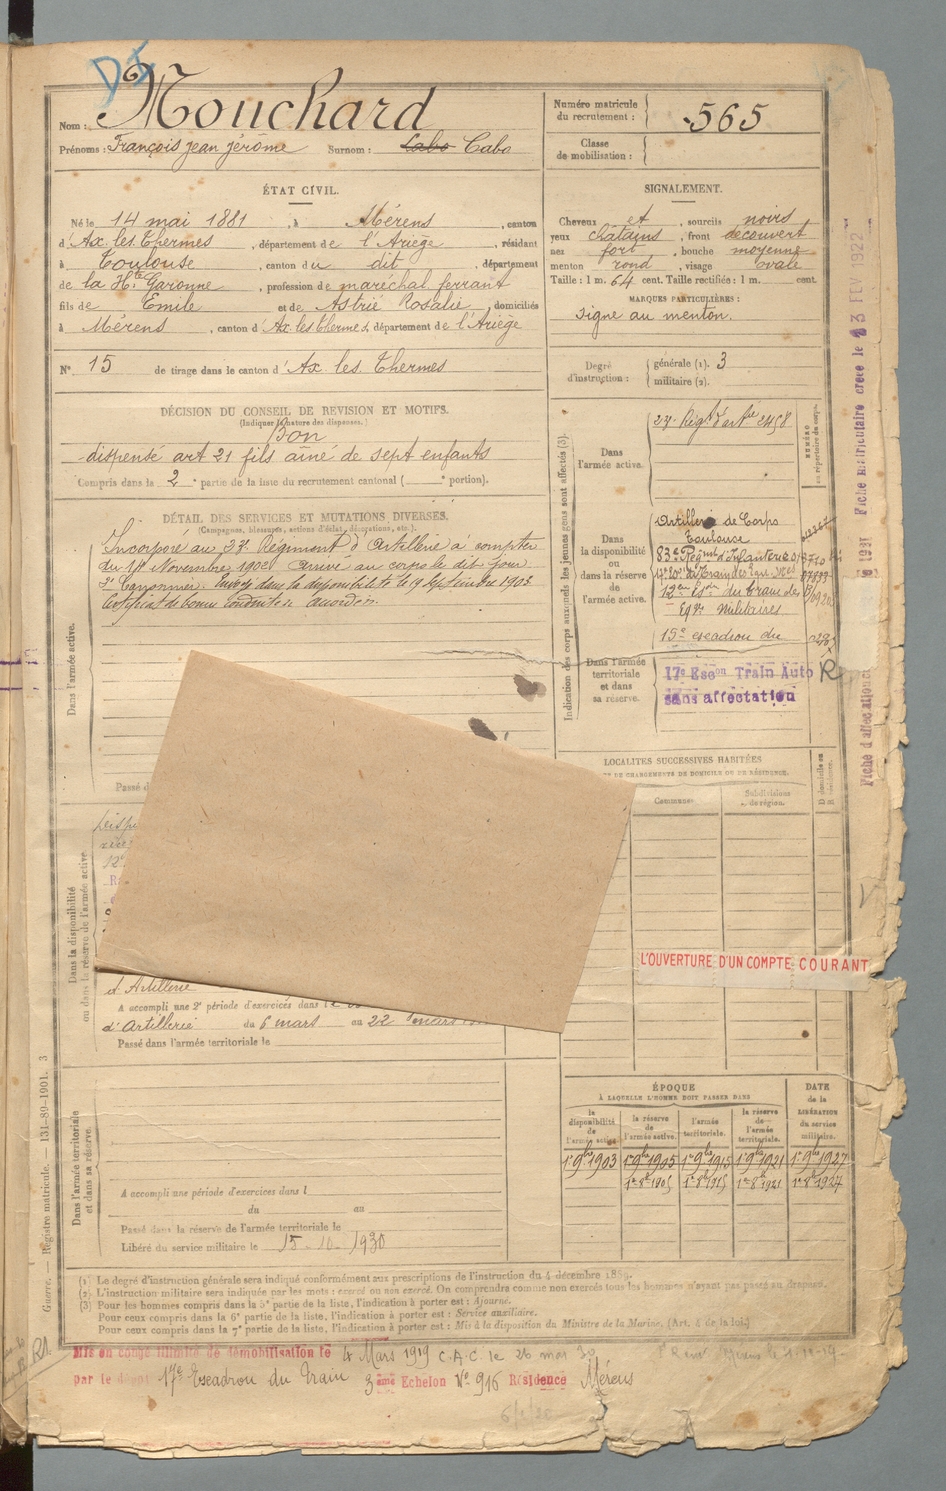 Nom : Mouchard
Prénoms : François jean jérôme Surnom : Cabo Cabo
Numéro matricule du recrutement : 565
Classe de mobilisation :
ÉTAT CIVIL.
Né le 14 mai 1881, à Mérens, canton
d'Ax les Thermes, département de l'Ariège, résidant
à Toulouse, canton du dit, département
de la Hte Garonne, profession de maréchal ferrant
fils de Emile et de Astrié Rosalie, domiciliés
à Mérens, canton d'Ax les Thermes, département de l'Ariège
N° 15 de tirage dans le canton d'Ax les Thermes
SIGNALEMENT.
Cheveux et, sourcils noirs
yeux châtains, front découvert
nez fort, bouche moyenne
menton rond, visage ovale
Taille : 1 m. 64 cent. Taille rectifiée : 1 m. cent.
MARQUES PARTICULIÈRES :
signe au menton.
Degré d'instruction : générale (1). 3
militaire (2).
DÉCISION DU CONSEIL DE REVISION ET MOTIFS.
(Indiquer la nature des dispenses.)
Bon
dispense art 21 fils aîné de sept enfants
Compris dans la 2e partie de la liste du recrutement cantonal ( e portion).
DÉTAIL DES SERVICES ET MUTATIONS DIVERSES.
(Campagnes, blessures, actions d'éclat, décorations, etc.).
Incorporé au 23e Régiment d'Artillerie à compter
du 14 Novembre 1902 arrivé au corps le dit jour
2e Canonnier. Envoyé dans la disponibilité le 19 Septembre 1903
Certificat de bonne conduite accordé.
Dans l'armée active.
Passé d
Indication des corps auxquels les jeunes gens sont affectés (3).
Dans l'armée active.
23e Régt d'artie 2458
NUMÉRO au répertoire du corps.
Dans la disponibilité ou dans la réserve de l'armée active.
Artillerie de Corps
Toulouse
83e Régmt d'Infanterie
du train des
Eqes Militaires
15e escadron du
Dans l'armée territoriale et dans sa réserve.
17e Escon Train Auto R
sans affectation
LOCALITÉS SUCCESSIVES HABITÉES
DE CHANGEMENTS DE DOMICILE OU DE RÉSIDENCE.
Communes.
Subdivisions de région.
D domicile ou R résidence.
Dans la disponibilité ou dans la réserve de l'armée active
d'Artillerie
A accompli une 2e période d'exercices dans l
d'Artillerie du 6 mars au 22 mars
Passé dans l'armée territoriale le
L'OUVERTURE D'UN COMPTE COURANT
Dans l'armée territoriale et dans sa réserve.
A accompli une période d'exercices dans l
du au
Passé dans la réserve de l'armée territoriale le
Libéré du service militaire le 15-10-1930
ÉPOQUE
À LAQUELLE L'HOMME DOIT PASSER DANS
la disponibilité de l'armée active.
la réserve de l'armée active.
l'armée territoriale.
la réserve de l'armée territoriale.
DATE de la LIBÉRATION du service militaire.
1er 9bre 1903 1er 9bre 1905 1er 9bre 1915 1er 9bre 1921 1er 9bre 1927
1er 8bre 1905 1er 8bre 1915 1er 8bre 1921 1er 8bre 1927
(1) Le degré d'instruction générale sera indiqué conformément aux prescriptions de l'instruction du 4 décembre 1889.
(2) L'instruction militaire sera indiquée par les mots : exercé ou non exercé. On comprendra comme non exercés tous les hommes n'ayant pas passé au drapeau.
(3) Pour les hommes compris dans la 5e partie de la liste, l'indication à porter est : Ajourné.
Pour ceux compris dans la 6e partie de la liste, l'indication à porter est : Service auxiliaire.
Pour ceux compris dans la 7e partie de la liste, l'indication à porter est : Mis à la disposition du Ministre de la Marine. (Art. 4 de la loi.)
Mis en congé illimité de démobilisation le 4 Mars 1919 C.A.C. le 26 mai 30
par le dépôt 17e Escadron du Train 3ème Echelon N° 916 Résidence Mérens
Guerre. — Registre matricule. — 131-89-1901. 3
Fiche matriculaire créée le 13 FEV 1922